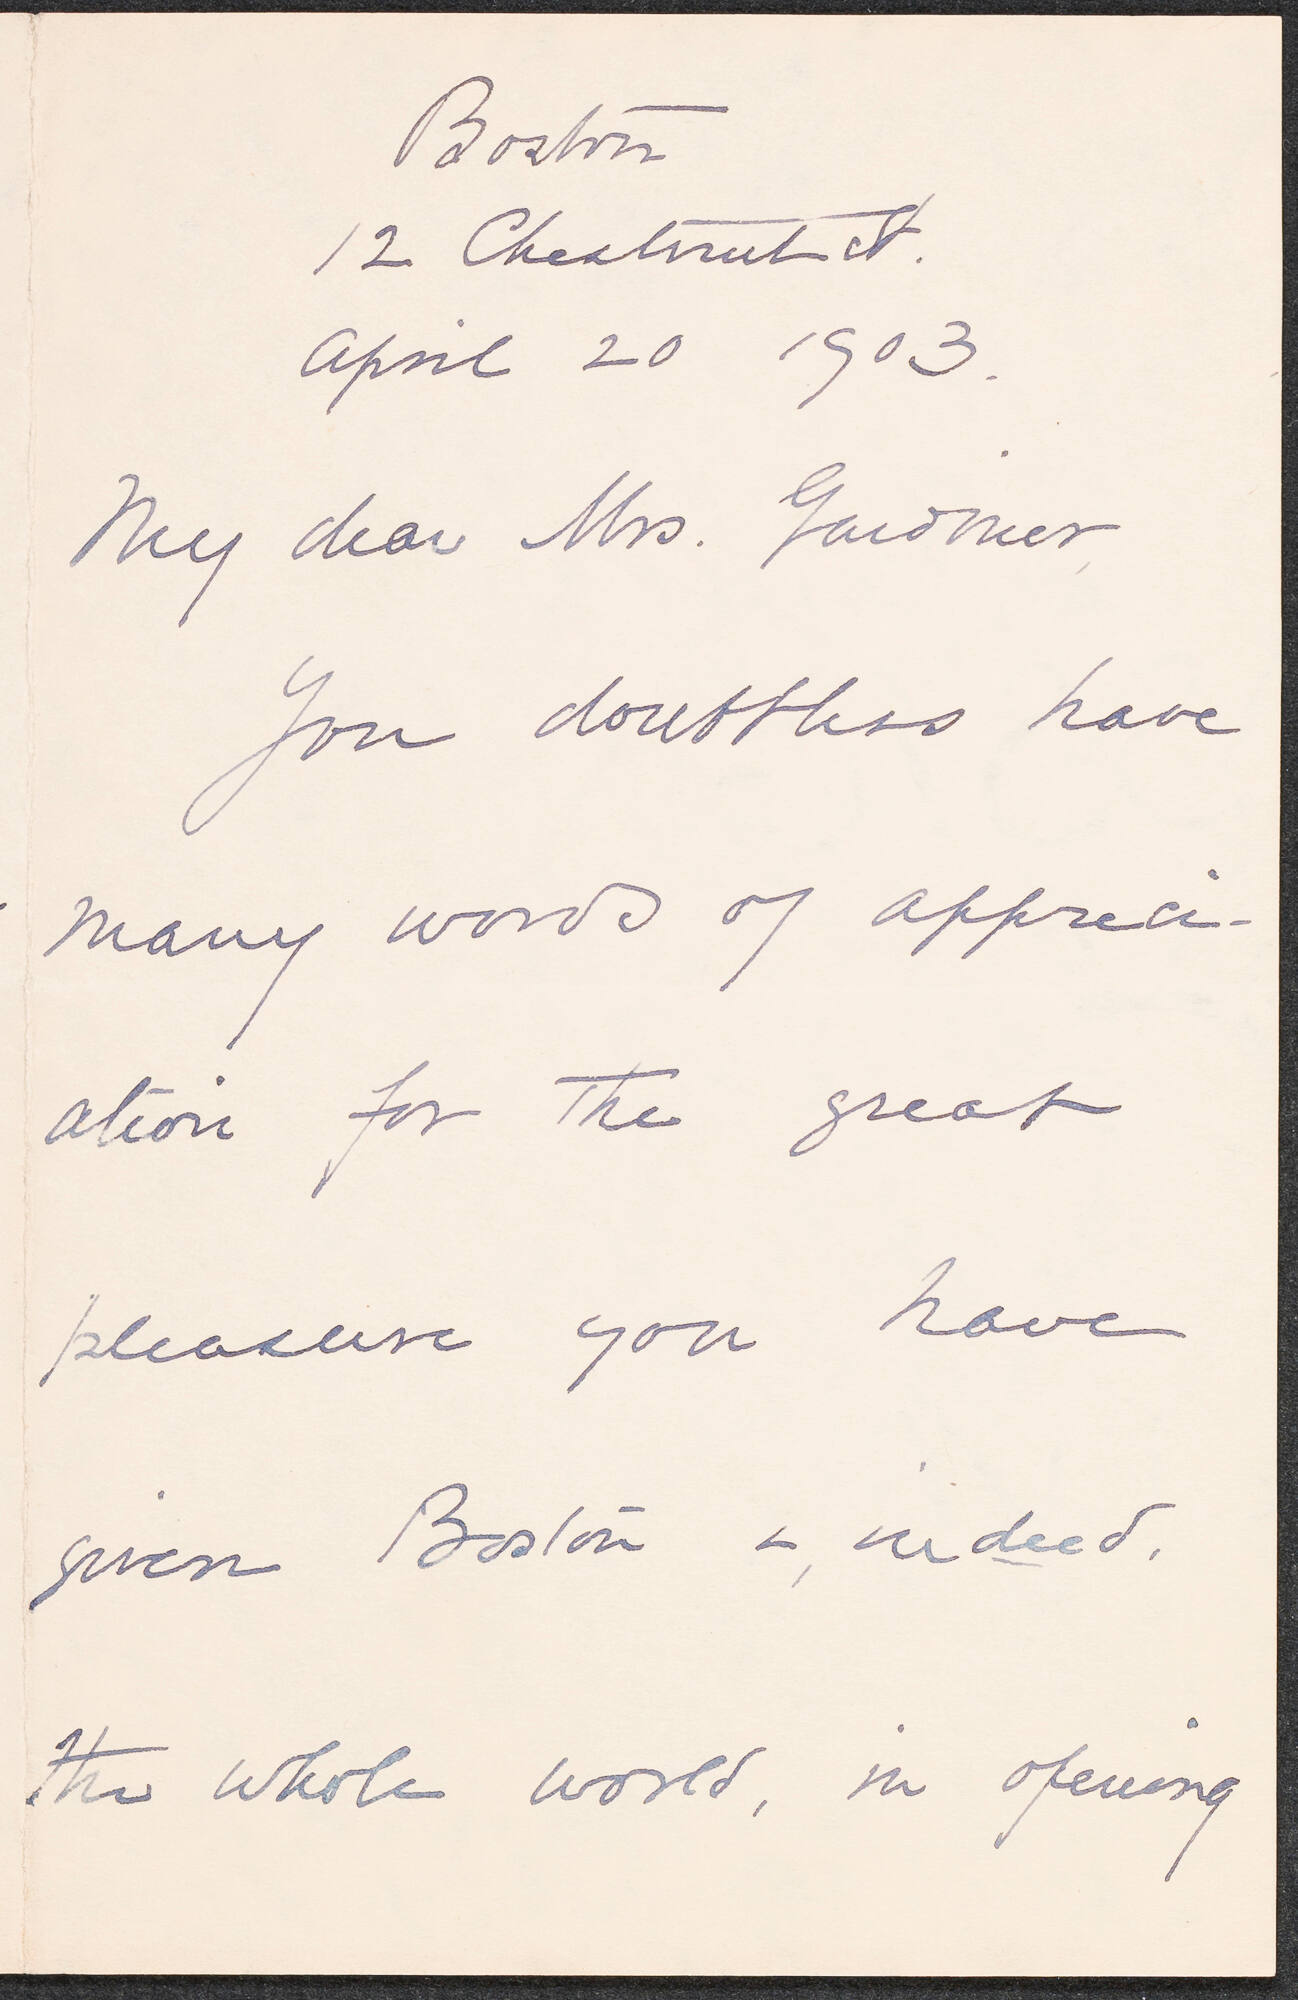 Boston
12 Chestnut St.
April 20 1903.
My dear Mrs. Gardner,
You doubtless have
many words of appreci-
ation for the great
pleasure you have
given Boston &, indeed,
the whole world, in opening